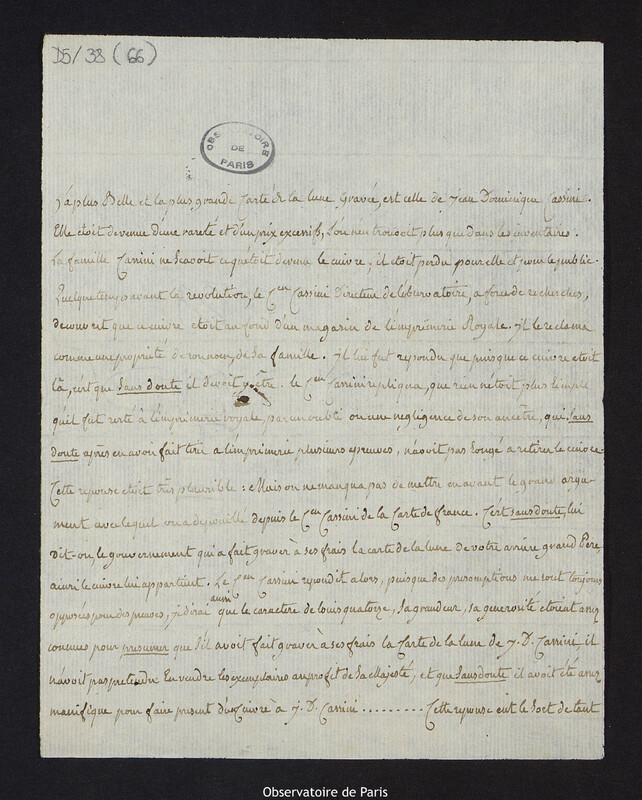 D5/38 (66)
OBSERVATOIRE
DE
PARIS
La plus Belle et la plus grande Carte de la lune Gravée, est celle de Jean Dominique Cassini.
Elle étoit devenue d'une rareté et d'un prix excessifs, l'on n'en trouvoit plus que dans les inventaires.
La famille Cassini ne Scavoit ce qu'étoit devenu le cuivre; il étoit perdu pour elle et pour le public.
Quelque temps avant la revolution, le C.en Cassini Directeur de l'observatoire, a force de recherches,
decouvrit que ce cuivre etoit au fond d'un magasin de l'imprimerie Royale. Il le reclama
comme une propriété de son nom, de Sa famille. Il lui fut repondu que puisque ce cuivre etoit
là, c'est que Sans doute il devoit y être. le C.en Cassini repliqua, que rien n'etoit plus simple
qu'il fut resté à l'imprimerie royale, par un oubli ou une negligence de son ancêtre, qui Sans
doute après en avoir fait tirer a l'imprimerie plusieurs epreuves, n'avoit pas Songé a retirer le cuivre.
Cette reponse etoit très plausible: Mais on ne manqua pas de mettre en avant le grand argu-
ment avec lequel on a depouillé depuis le C.en Cassini de la Carte de france. C'est sans doute, lui
dit-on, le gouvernement qui a fait graver à ses frais la carte de la lune de votre arriere grand Père
ainsi le cuivre lui appartient. Le C.en Cassini repondit alors, puisque des presomptions me sont toujours
opposées pour des preuves, je dirai aussi que le caractere de louis quatorze, Sa grandeur, sa generosité etoient assez
connues pour presumer que S'il avoit fait graver à ses frais la Carte de la lune de J. D. Cassini, il
n'avoit pas pretendu En vendre les exemplaires au profit de Sa Majesté, et que Sans doute il avoit été assez
manifique pour faire present du Cuivre à J. D. Cassini ......... Cette reponse eut le Sort de tout
Observatoire de Paris